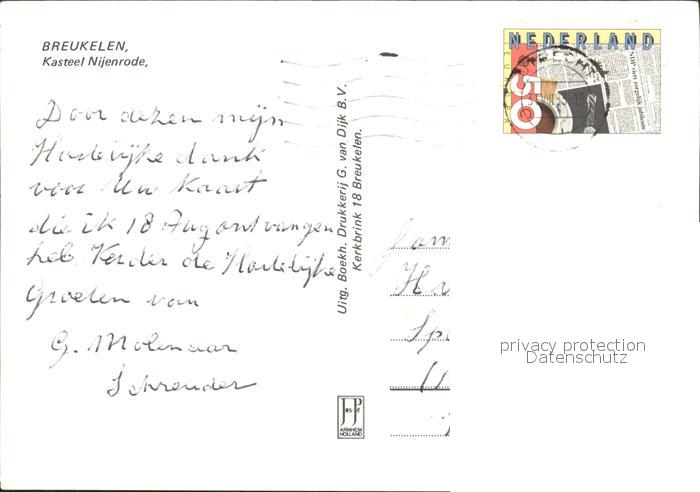 BREUKELEN,
Kasteel Nijenrode,
Door dezen mijn
Hartelijke dank
voor Uw kaart
die ik 18 Aug ontvangen
heb Verder de Hartelijke
Groeten van
G. Molenaar
Schreuder
Uitg. Boekh. Drukkerij G. van Dijk B.V.
Kerkbrink 18 Breukelen.
JosPé
ARNHEM
HOLLAND
NEDERLAND
50
UTRECHT
privacy protection
Datenschutz